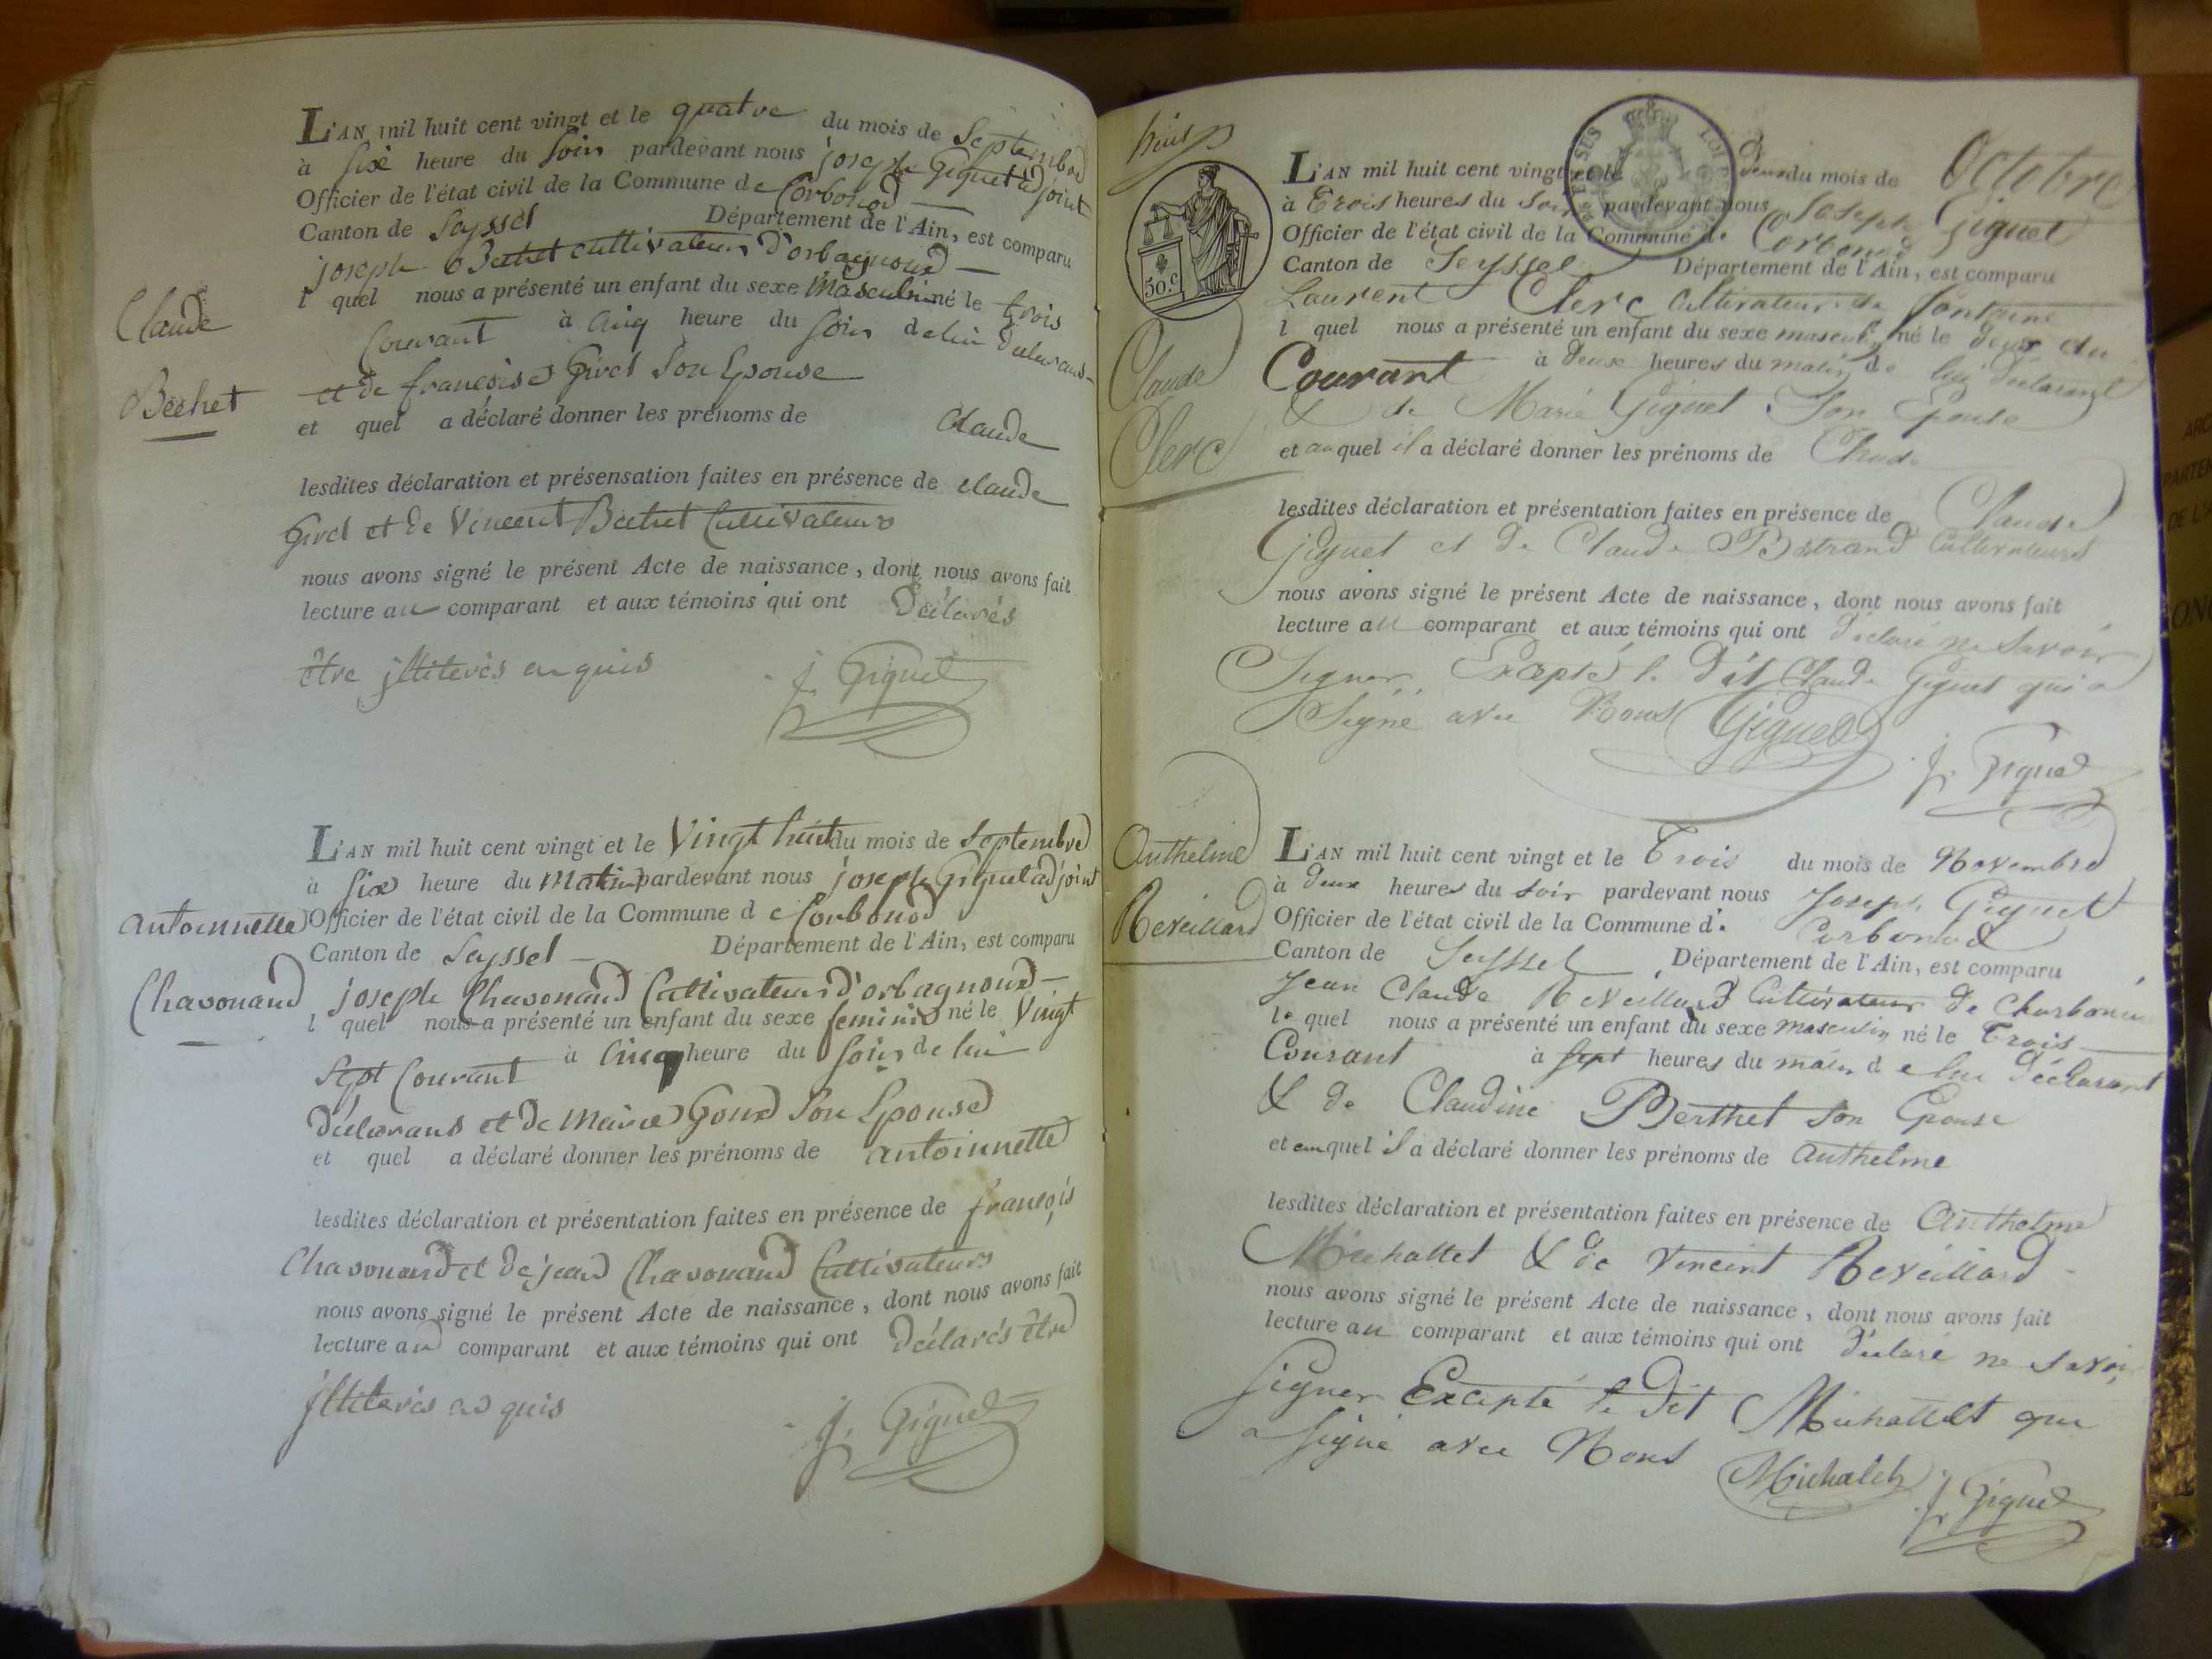 L'AN mil huit cent vingt et le quatre du mois de Septembre
à six heure du soir pardevant nous joseph Giguet adjoint
Officier de l'état civil de la Commune de Corbonod
Canton de Seyssel Département de l'Ain, est comparu
joseph Bechet cultivateur d'orbagnoud
l quel nous a présenté un enfant du sexe Masculin né le trois
Courant à cinq heure du soir de lui declarans
et de françoise Girel Son Epouse
et quel a déclaré donner les prénoms de Claude
lesdites déclaration et présensation faites en présence de claude
Girel et de Vincent Bechet Cultivateurs
nous avons signé le présent Acte de naissance, dont nous avons fait
lecture au comparant et aux témoins qui ont déclarés
être illiterés enquis
j. Giguet
Claude
Bechet
L'AN mil huit cent vingt et le Vingt huit du mois de Septembre
à six heure du Matin pardevant nous joseph Giguet adjoint
Officier de l'état civil de la Commune de Corbonod
Canton de Seyssel Département de l'Ain, est comparu
joseph Chavonand Cultivateur d'orbagnoud
l quel nous a présenté un enfant du sexe feminin né le Vingt
Sept Courant à Cinq heure du Soir de lui
déclarans et de Marie Goux Son Epouse
et quel a déclaré donner les prénoms de antoinnette
lesdites déclaration et présentation faites en présence de françois
Chavonand et de jean Chavonand Cultivateurs
nous avons signé le présent Acte de naissance, dont nous avons fait
lecture au comparant et aux témoins qui ont déclarés être
illiterés enquis
j. Giguet
antoinnette
Chavonand
huit
50. C
L'AN mil huit cent vingt et le Deux du mois de Octobre
à Trois heures du Soir pardevant nous Joseph Giguet
Officier de l'état civil de la Commune de Corbonod
Canton de Seyssel Département de l'Ain, est comparu
Laurent Clerc Cultivateur de fontaine
l quel nous a présenté un enfant du sexe masculin né le deux du
Courant à deux heures du matin de lui déclarant
& de Marie Giguet Son Epouse
et auquel il a déclaré donner les prénoms de Claude
lesdites déclaration et présentation faites en présence de Claude
Giguet et de Claude Bertrand Cultivateurs
nous avons signé le présent Acte de naissance, dont nous avons fait
lecture au comparant et aux témoins qui ont déclaré ne Savoir
Signer Excepté le dit Claude Giguet qui a
Signé avec Nous Giguet
j. Giguet
Claude
Clerc
L'AN mil huit cent vingt et le Trois du mois de Novembre
à deux heures du soir pardevant nous Joseph Giguet
Officier de l'état civil de la Commune de Corbonod
Canton de Seyssel Département de l'Ain, est comparu
Jean Claude Reveillard Cultivateur de
le quel nous a présenté un enfant du sexe masculin né le Trois
Courant à Sept heures du matin de lui déclarant
& de Claudine Berthet Son Epouse
et auquel il a déclaré donner les prénoms de Anthelme
lesdites déclaration et présentation faites en présence de Anthelme
Michallet & de Vincent Reveillard
nous avons signé le présent Acte de naissance, dont nous avons fait
lecture au comparant et aux témoins qui ont déclaré ne Savoir
Signer Excepté le dit Michallet qui
a Signé avec Nous Michalet
j. Giguet
Anthelme
Reveillard